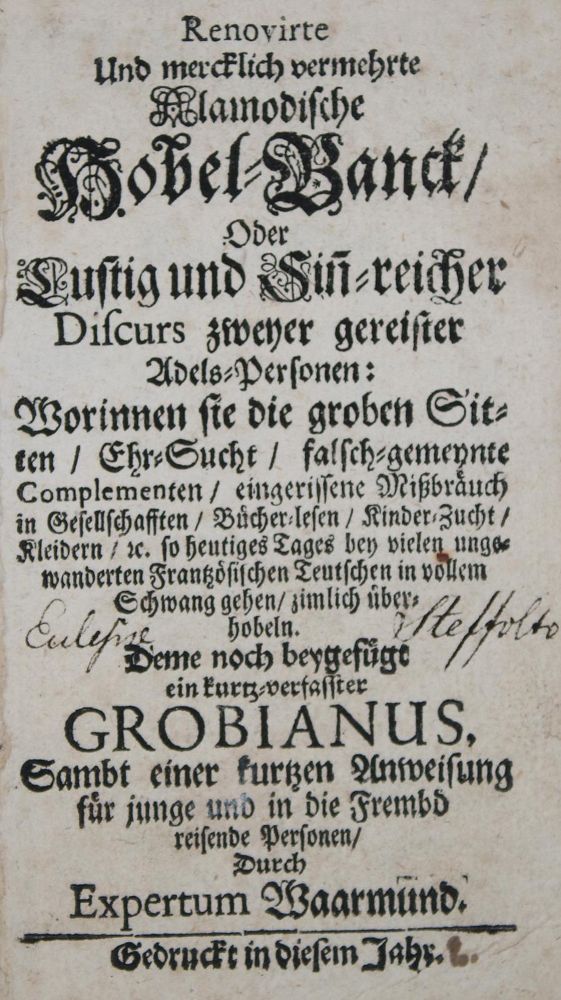 Renovirte
Und mercklich vermehrte
Alamodische
Hobel-Banck/
Oder
Lustig und Siñ-reicher
Discurs zweyer gereister
Adels-Personen:
Worinnen sie die groben Sit-
ten / Ehr-Sucht / falsch-gemeynte
Complementen / eingerissene Mißbräuch
in Gesellschafften / Bücher-lesen / Kinder-Zucht /
Kleidern / ꝛc. so heutiges Tages bey vielen unge-
wanderten Frantzösischen Teutschen in vollem
Schwang gehen / zimlich über-
hobeln.
Deme noch beygefügt
ein kurtz-verfasster
GROBIANUS,
Sambt einer kurtzen Anweisung
für junge und in die Frembd
reisende Personen/
Durch
Expertum Waarmund.
Gedruckt in diesem Jahr.